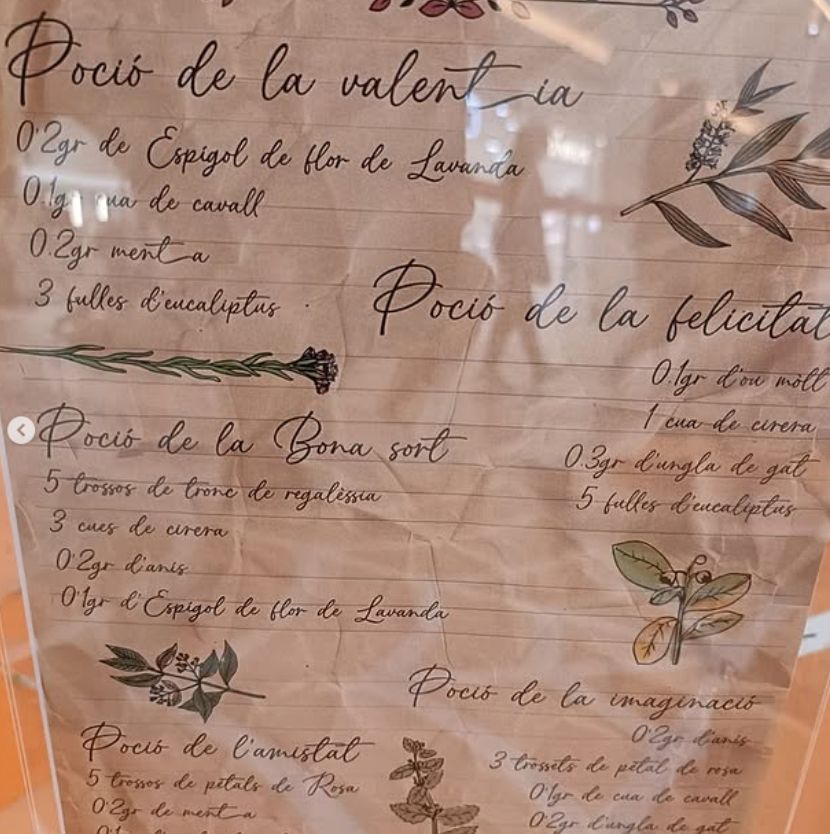 Poció de la valentia
0'2gr de Espígol de flor de Lavanda
0.1gr cua de cavall
0.2gr menta
3 fulles d'eucaliptus
Poció de la felicitat
0.1gr d'ou mòlt
1 cua de cirera
0.3gr d'ungla de gat
5 fulles d'eucaliptus
Poció de la Bona sort
5 trossos de tronc de regalèssia
3 cues de cirera
0'2gr d'anís
0'1gr d'Espígol de flor de Lavanda
Poció de l'amistat
5 trossos de pètals de Rosa
0'2gr de menta
Poció de la imaginació
0'2gr d'anís
3 trossets de pètal de rosa
0'1gr de cua de cavall
0'2gr d'ungla de gat